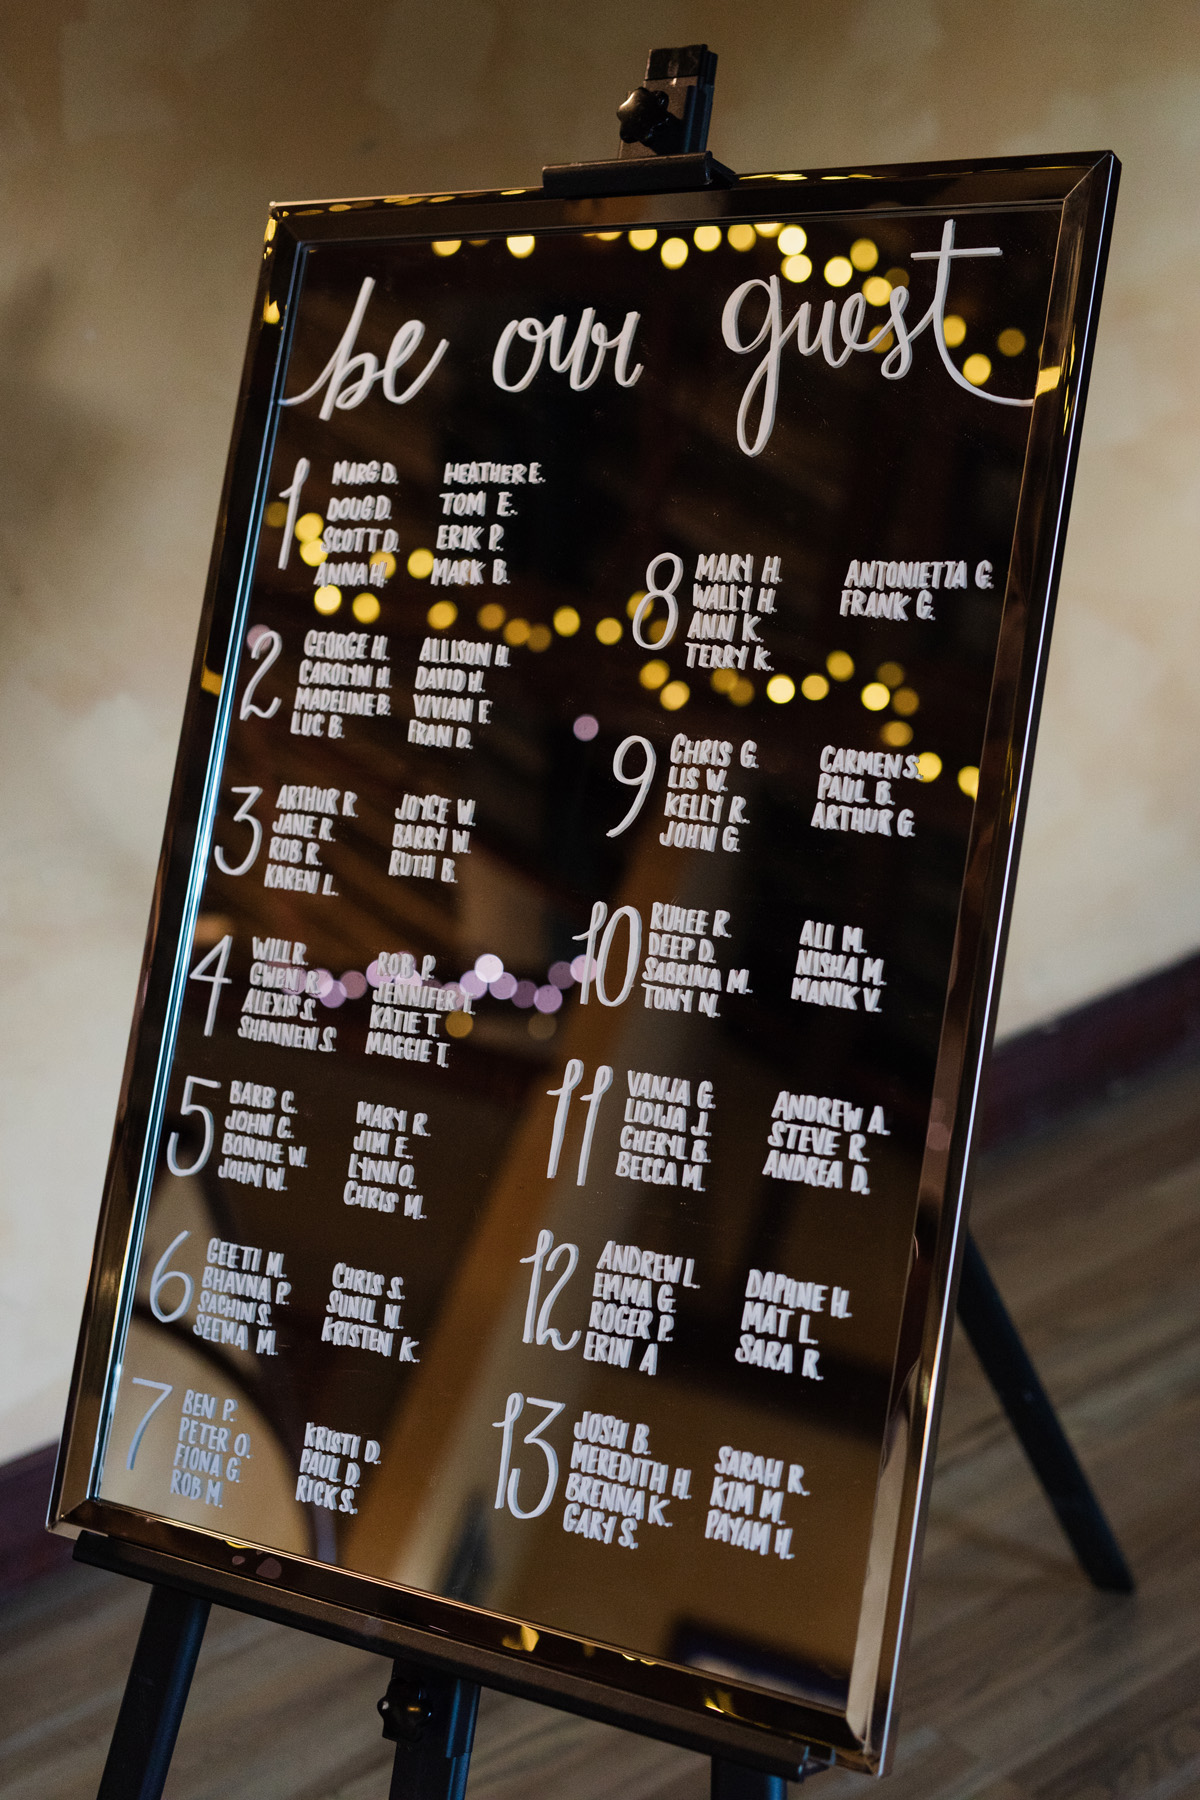 be our guest
1
MARG D.
DOUG D.
SCOTT D.
ANNA H.
HEATHER E.
TOM E.
ERIK P.
MARK B.
2
GEORGE H.
CAROLYN H.
MADELINE B.
LUC B.
ALLISON H.
DAVID H.
VIVIAN F.
FRAN D.
3
ARTHUR R.
JANE R.
ROB R.
KAREN L.
JOYCE W.
BARRY W.
RUTH B.
4
WILL R.
GWEN R.
ALEXIS S.
SHANNEN S.
ROB P.
JENNIFER T.
KATIE T.
MAGGIE T.
5
BARB C.
JOHN C.
BONNIE W.
JOHN W.
MARY R.
JIM E.
LYNN O.
CHRIS M.
6
GEETI M.
BHAVNA P.
SACHIN S.
SEEMA M.
CHRIS S.
SUNIL N.
KRISTEN K.
7
BEN P.
PETER O.
FIONA G.
ROB M.
KRISTI D.
PAUL D.
RICK S.
8
MARY H.
WALLY H.
ANN K.
TERRY K.
ANTONIETTA G.
FRANK G.
9
CHRIS G.
LIS W.
KELLY R.
JOHN G.
CARMEN S.
PAUL B.
ARTHUR G.
10
RUHEE R.
DEEP D.
SABRINA M.
TONY N.
ALI M.
NISHA M.
MANIK V.
11
VANJA G.
LIDIJA J.
CHERYL B.
BECCA M.
ANDREW A.
STEVE R.
ANDREA D.
12
ANDREW L.
EMMA G.
ROGER P.
ERIN A
DAPHNE H.
MAT L.
SARA R.
13
JOSH B.
MEREDITH H.
BRENNA K.
GARY S.
SARAH R.
KIM M.
PAYAM H.